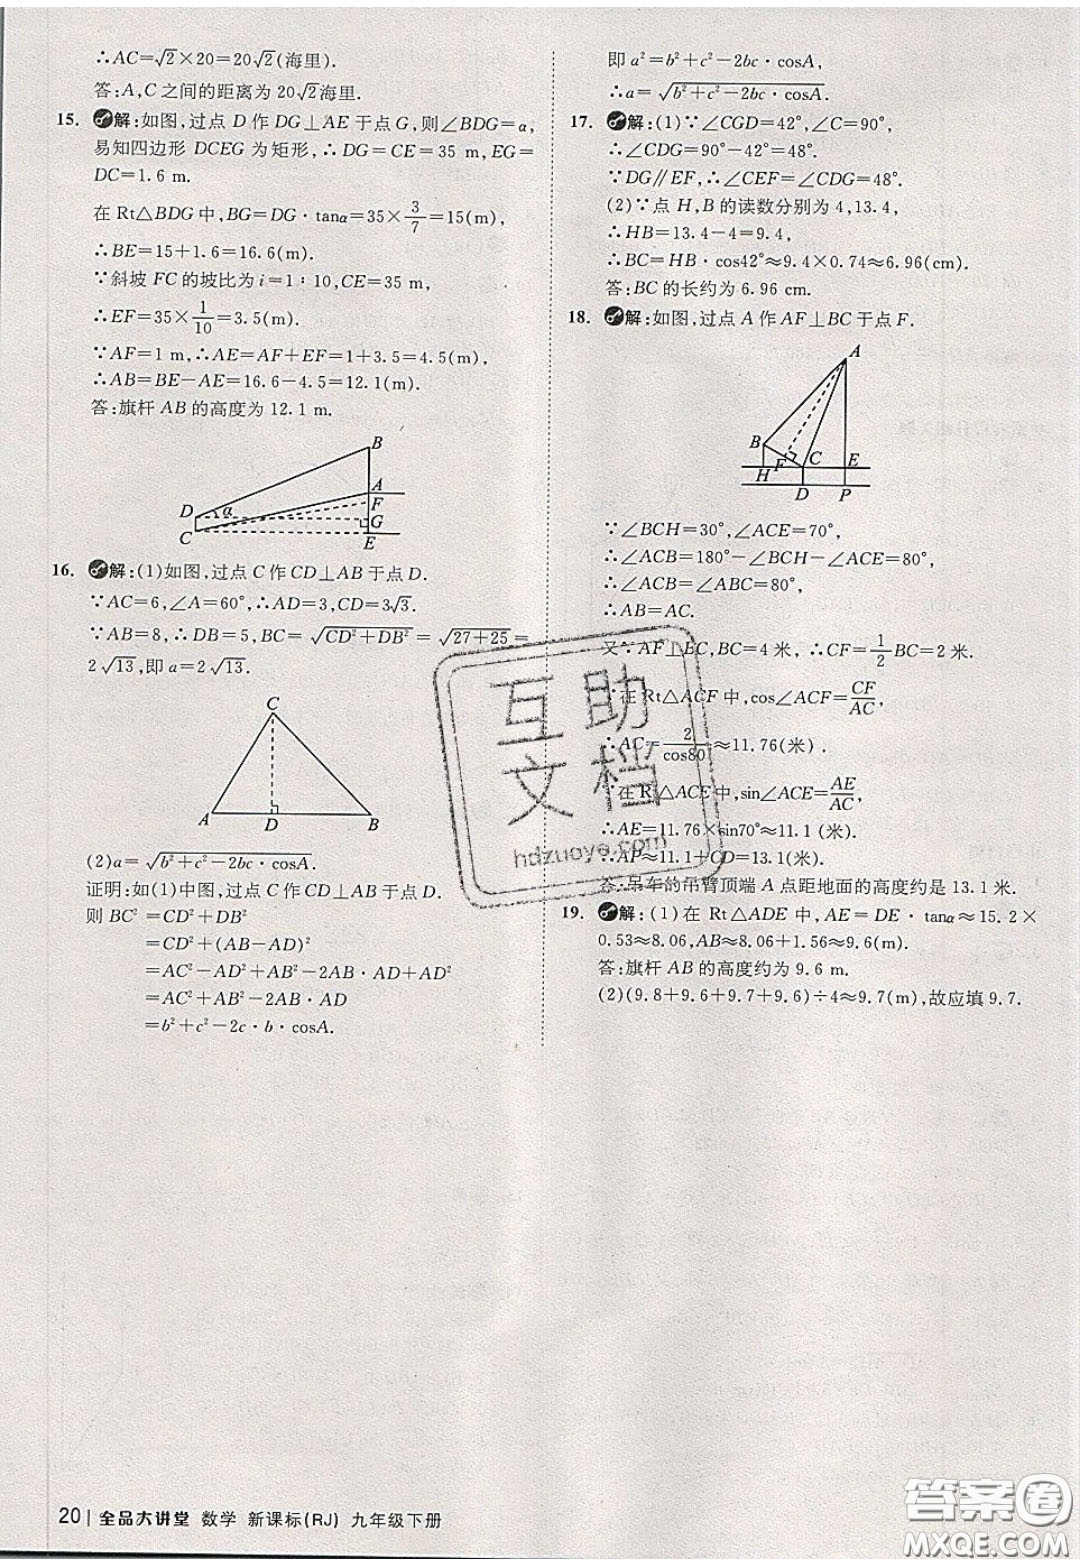 ∴AC=√2×20=20√2(海里).
答:A,C之间的距离为20√2海里.
15. 解:如图,过点D作DG⊥AE于点G,则∠BDG=α,
易知四边形DCEG为矩形,∴DG=CE=35 m,EG=
DC=1.6 m.
在Rt△BDG中,BG=DG·tanα=35×3/7=15(m),
∴BE=15+1.6=16.6(m).
∵斜坡FC的坡比为i=1∶10,CE=35 m,
∴EF=35×1/10=3.5(m).
∵AF=1 m,∴AE=AF+EF=1+3.5=4.5(m),
∴AB=BE-AE=16.6-4.5=12.1(m).
答:旗杆AB的高度为12.1 m.
B
A
F
D α
G
C
E
16. 解:(1)如图,过点C作CD⊥AB于点D.
∵AC=6,∠A=60°,∴AD=3,CD=3√3.
∵AB=8,∴DB=5,BC=√(CD²+DB²)=√(27+25)=
2√13,即a=2√13.
C
A D B
(2)a=√(b²+c²-2bc·cosA).
证明:如(1)中图,过点C作CD⊥AB于点D.
则BC²=CD²+DB²
=CD²+(AB-AD)²
=AC²-AD²+AB²-2AB·AD+AD²
=AC²+AB²-2AB·AD
=b²+c²-2c·b·cosA.
即a²=b²+c²-2bc·cosA,
∴a=√(b²+c²-2bc·cosA).
17. 解:(1)∵∠CGD=42°,∠C=90°,
∴∠CDG=90°-42°=48°.
∵DG∥EF,∴∠CEF=∠CDG=48°.
(2)∵点H,B的读数分别为4,13.4,
∴HB=13.4-4=9.4,
∴BC=HB·cos42°≈9.4×0.74≈6.96(cm).
答:BC的长约为6.96 cm.
18. 解:如图,过点A作AF⊥BC于点F.
A
B
H F C E
D P
∵∠BCH=30°,∠ACE=70°,
∴∠ACB=180°-∠BCH-∠ACE=80°,
∴∠ACB=∠ABC=80°,
∴AB=AC.
又∵AF⊥BC,BC=4米,∴CF=1/2BC=2米.
∵在Rt△ACF中,cos∠ACF=CF/AC,
∴AC=2/cos80°≈11.76(米).
∵在Rt△ACE中,sin∠ACE=AE/AC,
∴AE=11.76×sin70°≈11.1(米),
∴AP≈11.1+CD=13.1(米).
答:吊车的吊臂顶端A点距地面的高度约是13.1米.
19. 解:(1)在Rt△ADE中,AE=DE·tanα≈15.2×
0.53≈8.06,AB≈8.06+1.56≈9.6(m).
答:旗杆AB的高度约为9.6 m.
(2)(9.8+9.6+9.7+9.6)÷4≈9.7(m),故应填9.7.
互助
文档
hdzuoye.com
20 | 全品大讲堂 数学 新课标(RJ) 九年级下册
答案圈
MXQE.COM